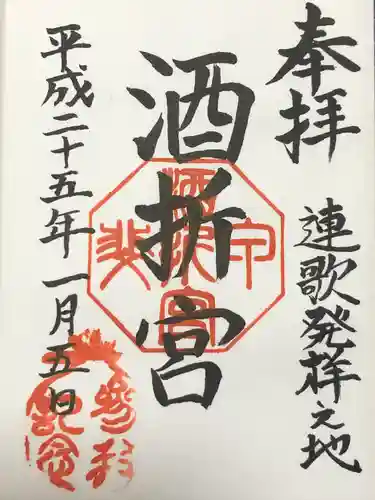 奉拝
連歌発祥之地
酒折宮
平成二十五年一月五日
酒折宮
参拝
記念